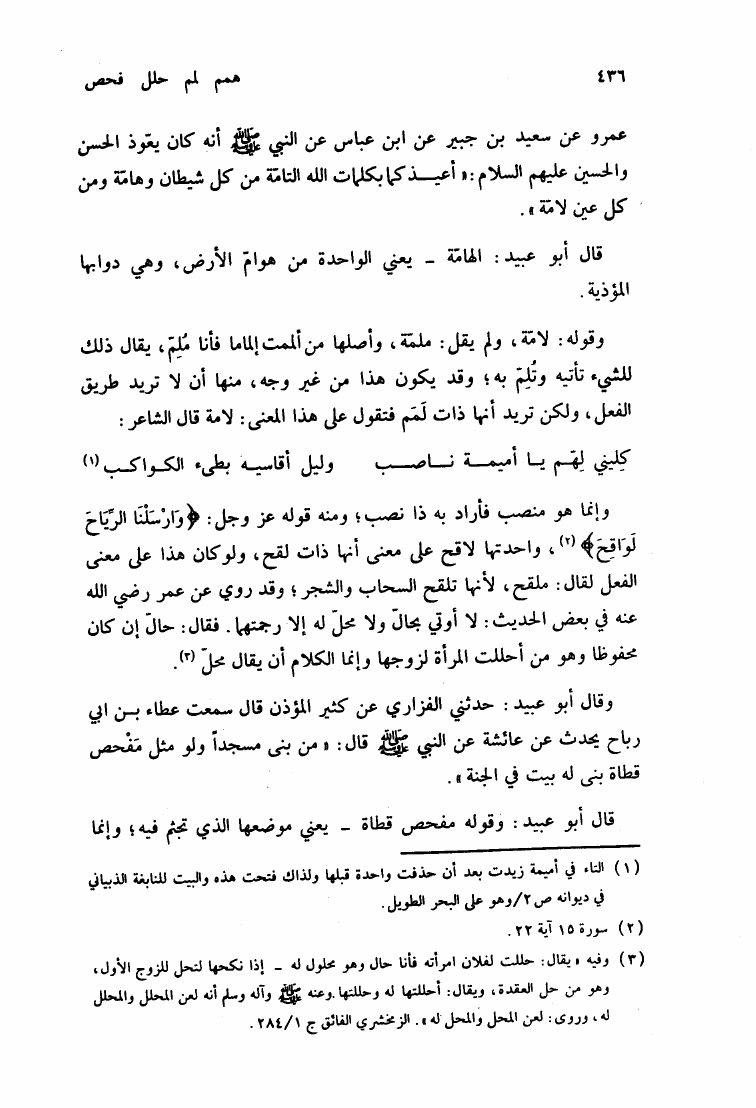 ٤٣٦
همم لمم حلل فحص
عمرو عن سعيد بن جبير عن ابن عباس عن النبي ﷺ أنه كان يعّوذ الحسن
والحسين عليهم السلام: « أعيـذكما بكلمات الله التامّة من كل شيطان وهامّة ومن
كل عين لامّة ».
قال أبو عبيد : الهامّة ـ يعني الواحدة من هوامّ الأرض، وهي دوابها
المؤذية.
وقوله: لامّة، ولم يقل: ملمّة، وأصلها من ألممت إلماما فأنا مُلِمّ، يقال ذلك
للشيء تأتيه وتُلِمّ به؛ وقد يكون هذا من غير وجه، منها أن لا تريد طريق
الفعل، ولكن تريد أنها ذات لَمَم فتقول على هذا المعنى: لامة قال الشاعر :
كِليني لِهَـّم يـا أميمـة نـاصـب وليل أقاسيـه بطيء الكـواكـب (١)
وإنما هو منصب فأراد به ذا نصب؛ ومنه قوله عز وجل: ﴿وَأَرْسَلْنَا الرِّيَاحَ
لَوَاقِحَ﴾ (٢)، واحدتها لاقح على معنى أنها ذات لقح، ولو كان هذا على معنى
الفعل لقال: ملقح، لأنها تلقح السحاب والشجر؛ وقد روي عن عمر رضي الله
عنه في بعض الحديث: لا أوتي بحالّ ولا محلّ له إلا رجمتهما. فقال: حالّ إن كان
محفوظا وهو من أحللت المرأة لزوجها وإنما الكلام أن يقال محلّ (٣).
وقال أبو عبيد : حدثني الفزاري عن كثير المؤذن قال سمعت عطاء بـن ابي
رباح يحدث عن عائشة عن النبي ﷺ قال: « من بنى مسجداً ولو مثل مَفْحص
قطاة بنى له بيت في الجنة ».
قال أبو عبيد : وقوله مفحص قطاة ـ يعني موضعها الذي تجثم فيه؛ وإنما
(١) التاء في أميمة زيدت بعد أن حذفت واحدة قبلها ولذاك فتحت هذه والبيت للنابغة الذبياني
في ديوانه ص٢/وهو على البحر الطويل.
(٢) سورة ١٥ آية ٢٢.
(٣) وفيه « يقال: حللت لفلان امرأته فأنا حال وهو محلول له ـ إذا نكحها لتحل للزوج الأول،
وهو من حل العقدة، ويقال: أحللتها له وحللتها. وعنه ﷺ وآله وسلم أنه لعن المحلل والمحلل
له، وروى: لعن المحل والمحل له ». الزمخشري الفائق ج ٢٨٤/١.